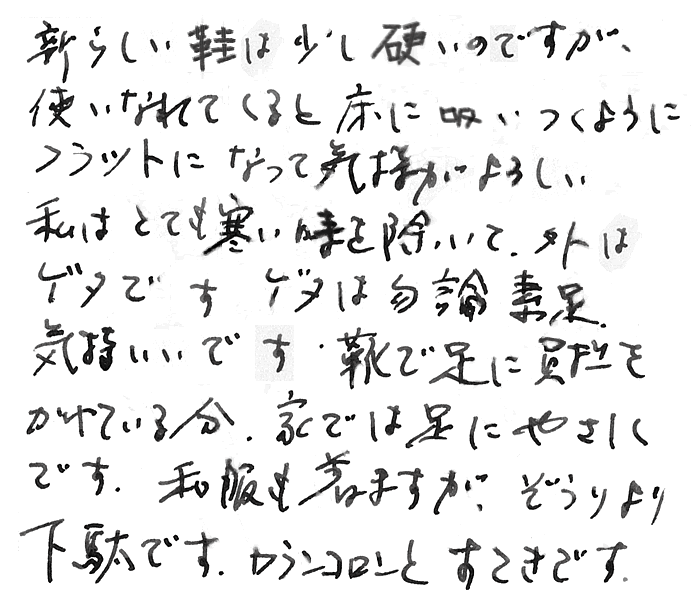 新らしい鞋は少し硬いのですが、
使いなれてくると床に吸いつくように
フラットになって気持がよろしい
私はとても寒い時を除いて、外は
ゲタです ゲタは勿論素足、
気持いいです・靴で足に負担を
かけている分、家では足にやさしく
です。和服も着ますが、ぞうりより
下駄です。カランコロンとすてきです。